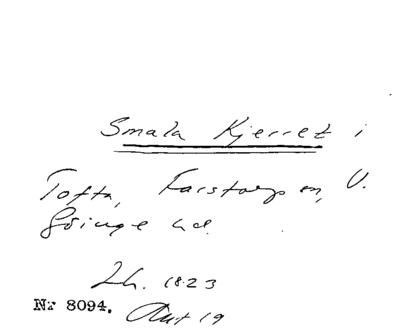 Smala Kjerret i
Tofta, Farstorps sn, V.
Göinge hd.
Lh. 1823
Nr 8094. Akt 19